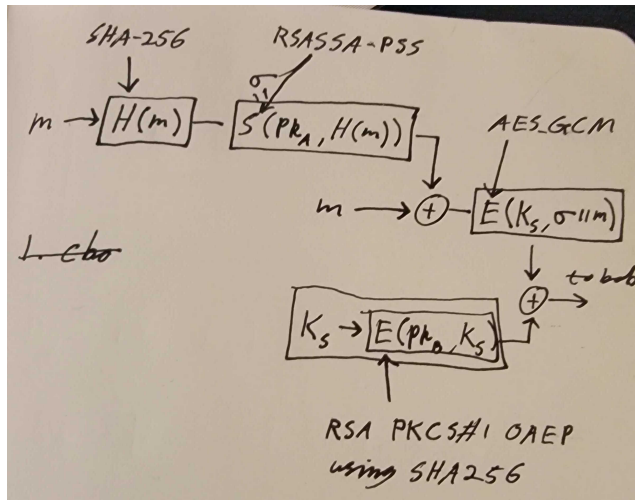 SHA-256
RSASSA-PSS
σ
m → H(m)
S(pk_A, H(m))
AES_GCM
m → +
E(K_S, σ||m)
1. cbo
to bob
+
K_S → E(pk_B, K_S)
RSA PKCS#1 OAEP
using SHA256